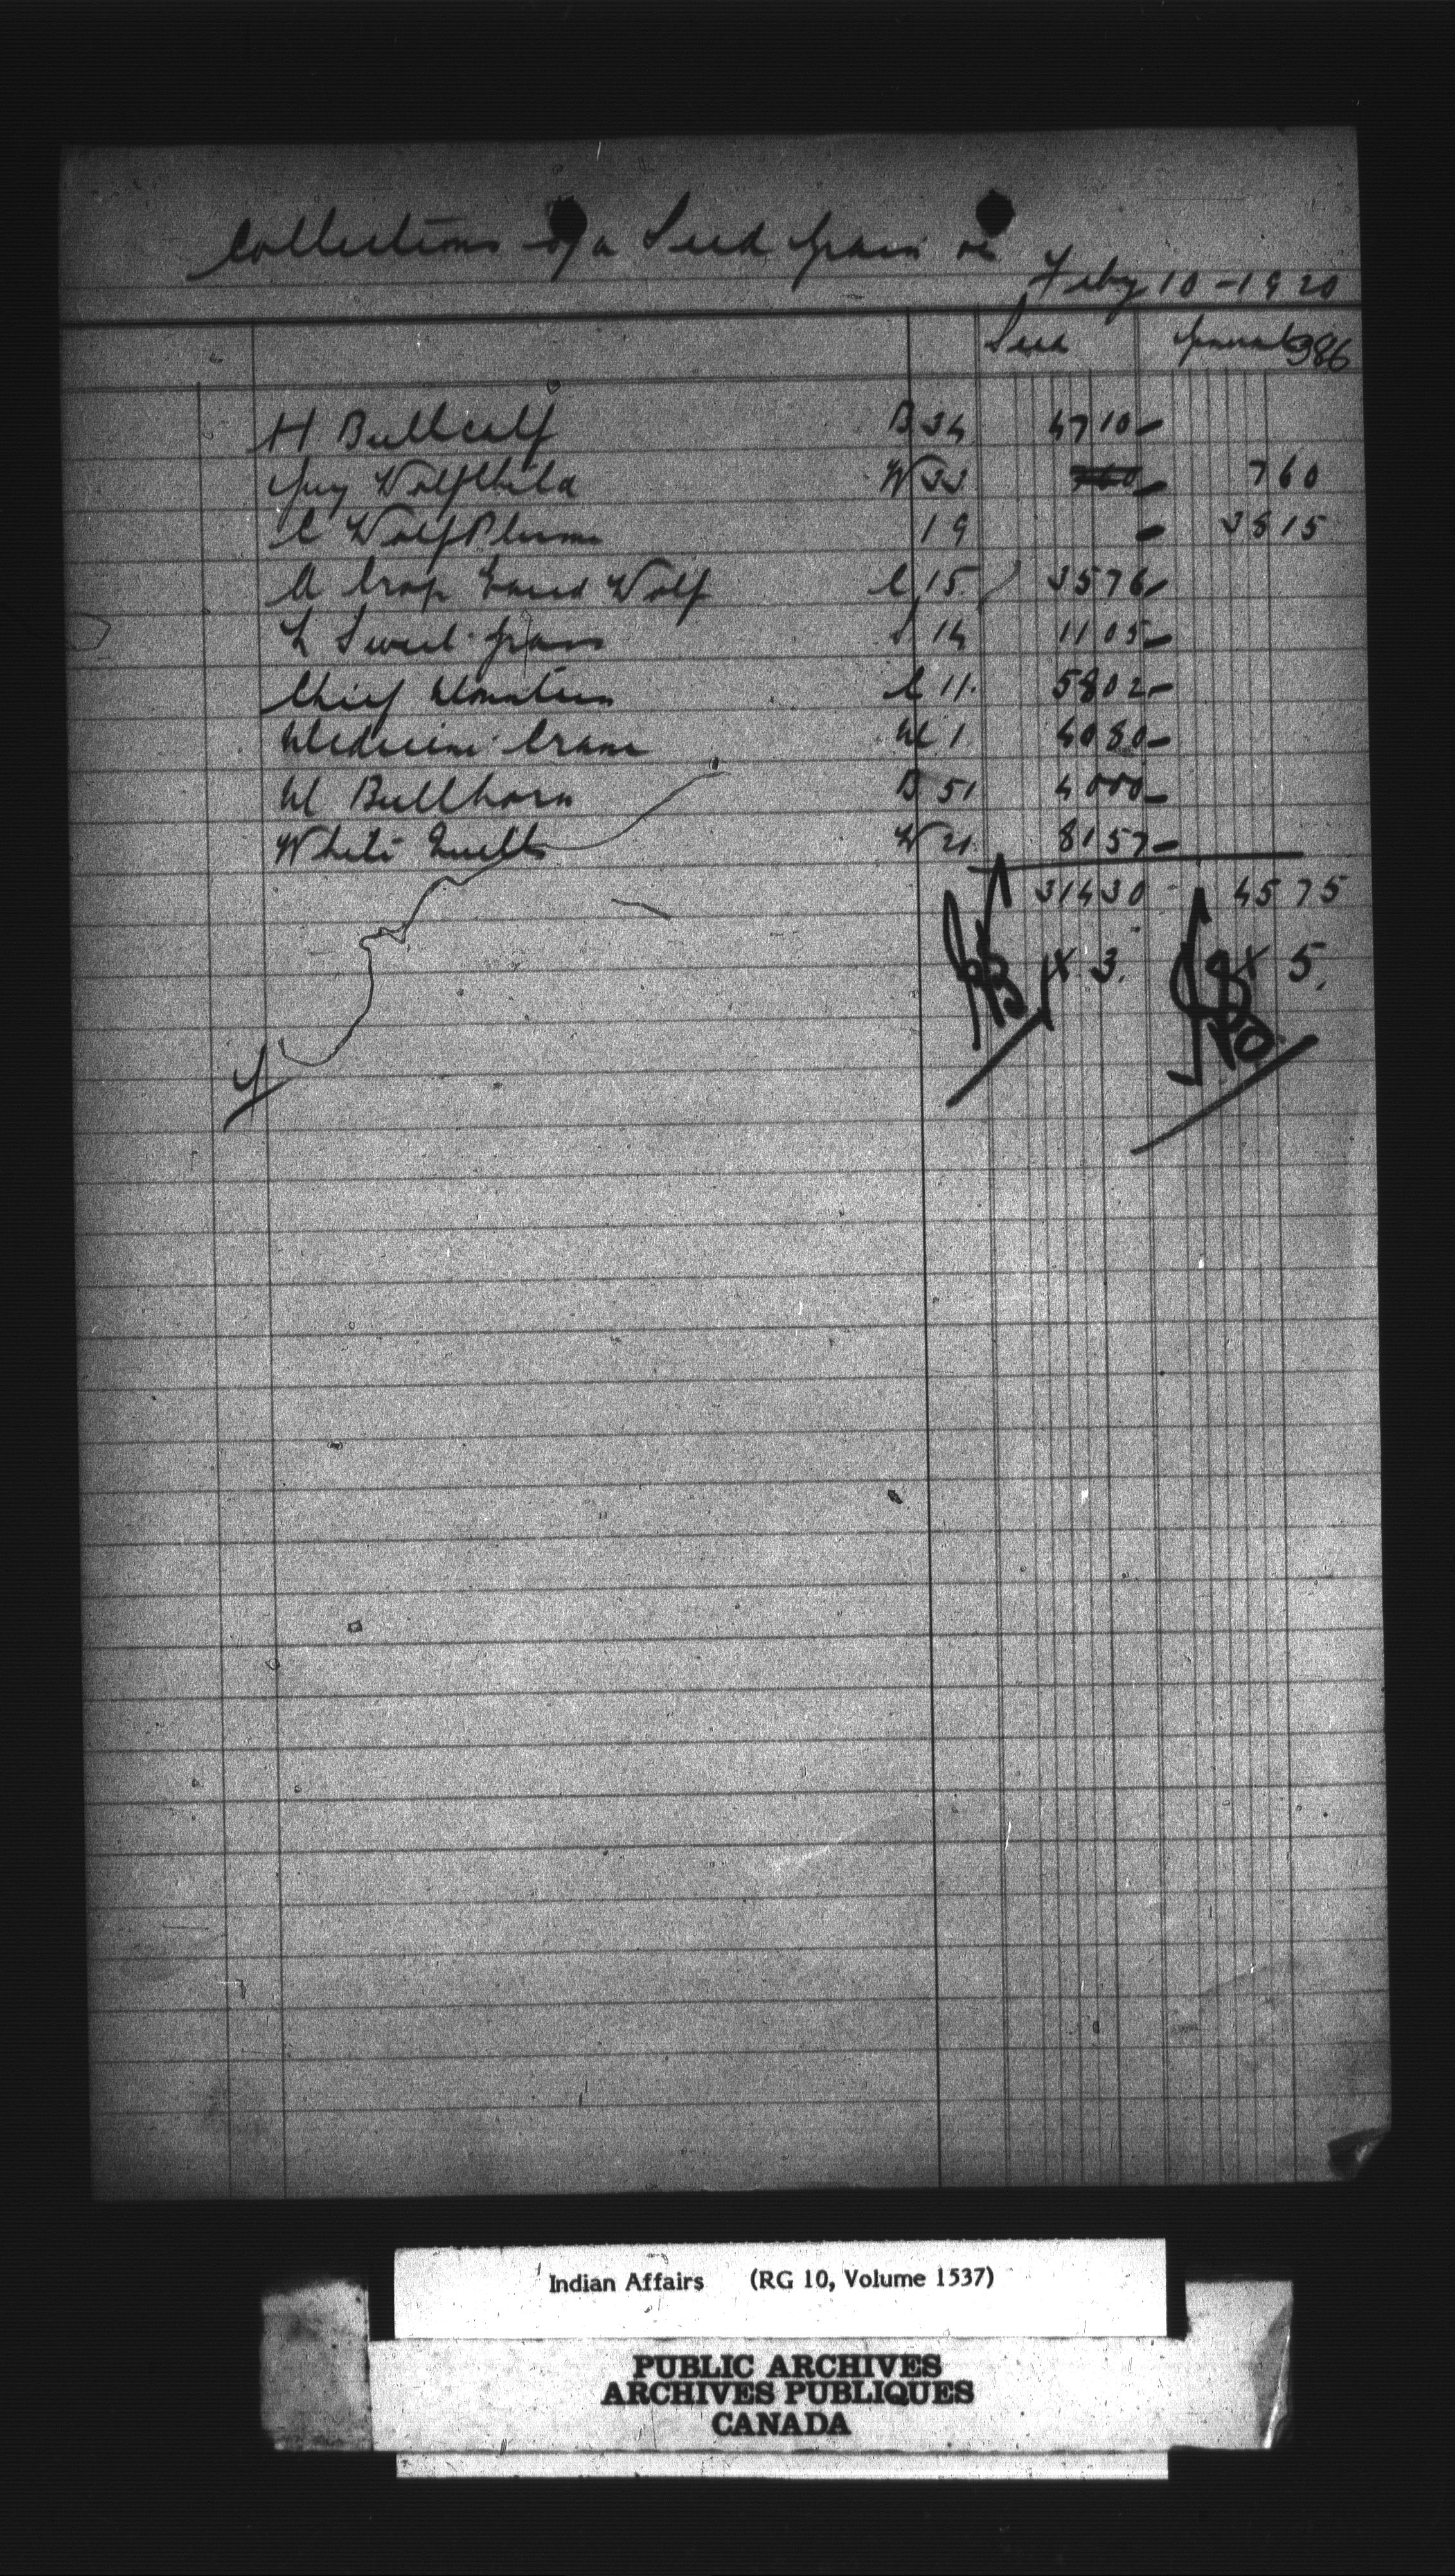 Collections o/a Seed Grain
Feby 10-1920
Seed General 386
H Bullcalf B 34 4710-
Guy Wolfchild W 33 760 - 760
C Wolf Plume 19 - 3815
A Crop Eared Wolf C 15 3576-
L Sweet Grass S 14 1105-
Chief Mountain C 11. 5802-
Medicine Crane M 1. 4080-
M Bullhorn B 51 4000-
White Quills W 21. 8157-
31430 - 4575
X 3. X 5.
Indian Affairs (RG 10, Volume 1537)
PUBLIC ARCHIVES
ARCHIVES PUBLIQUES
CANADA